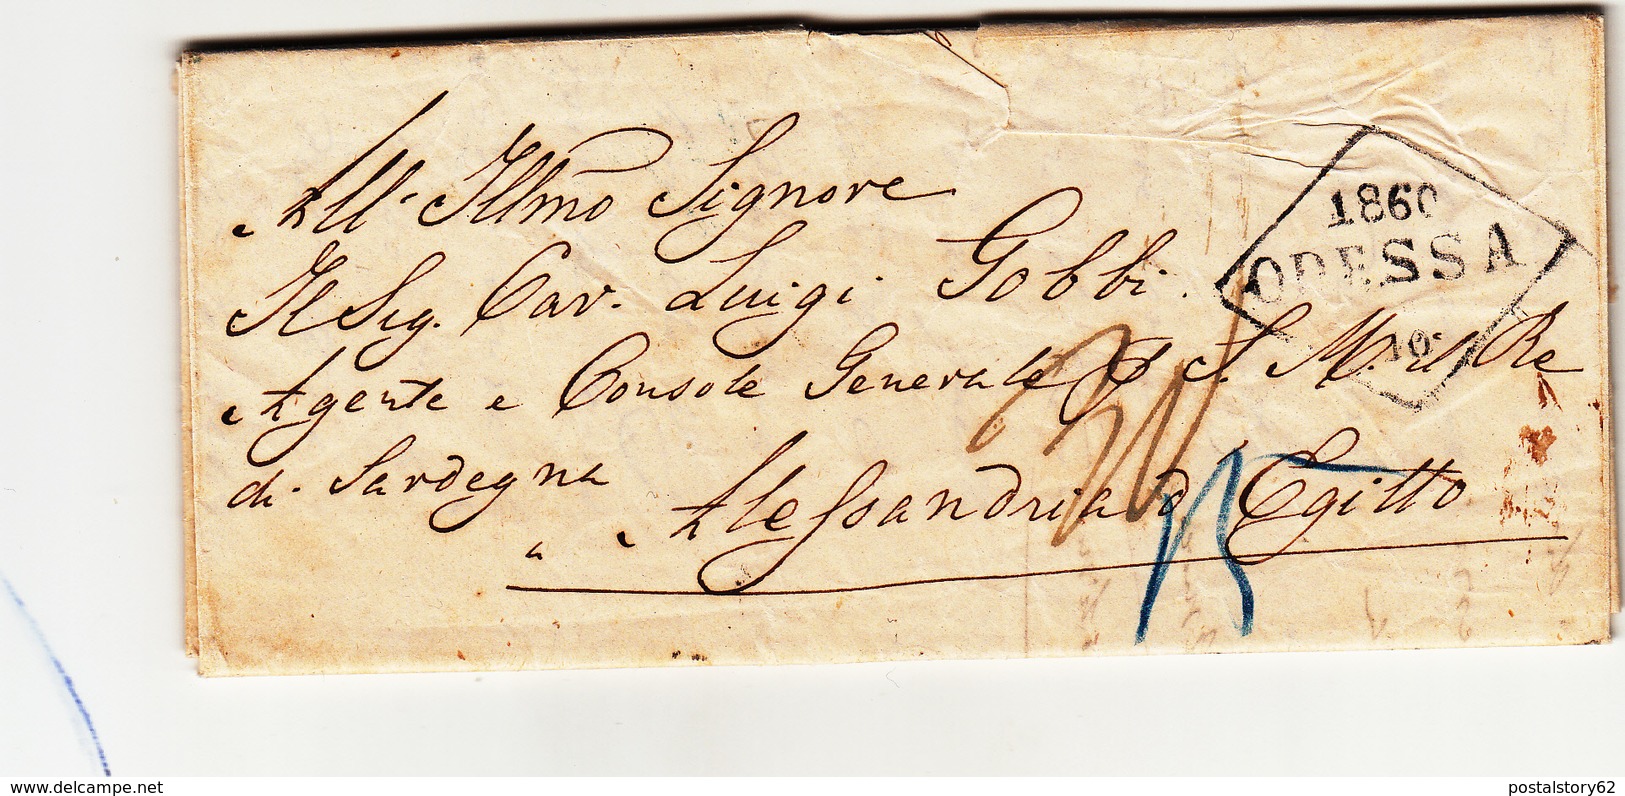 All' Illmo Signore
Il Sig. Cav. Luigi Gobbi.
Agente e Console Generale di S. M. il Re
di Sardegna
a Alessandria d Egitto
1860
ODESSA
10
15
delcampe.net
postalstory62